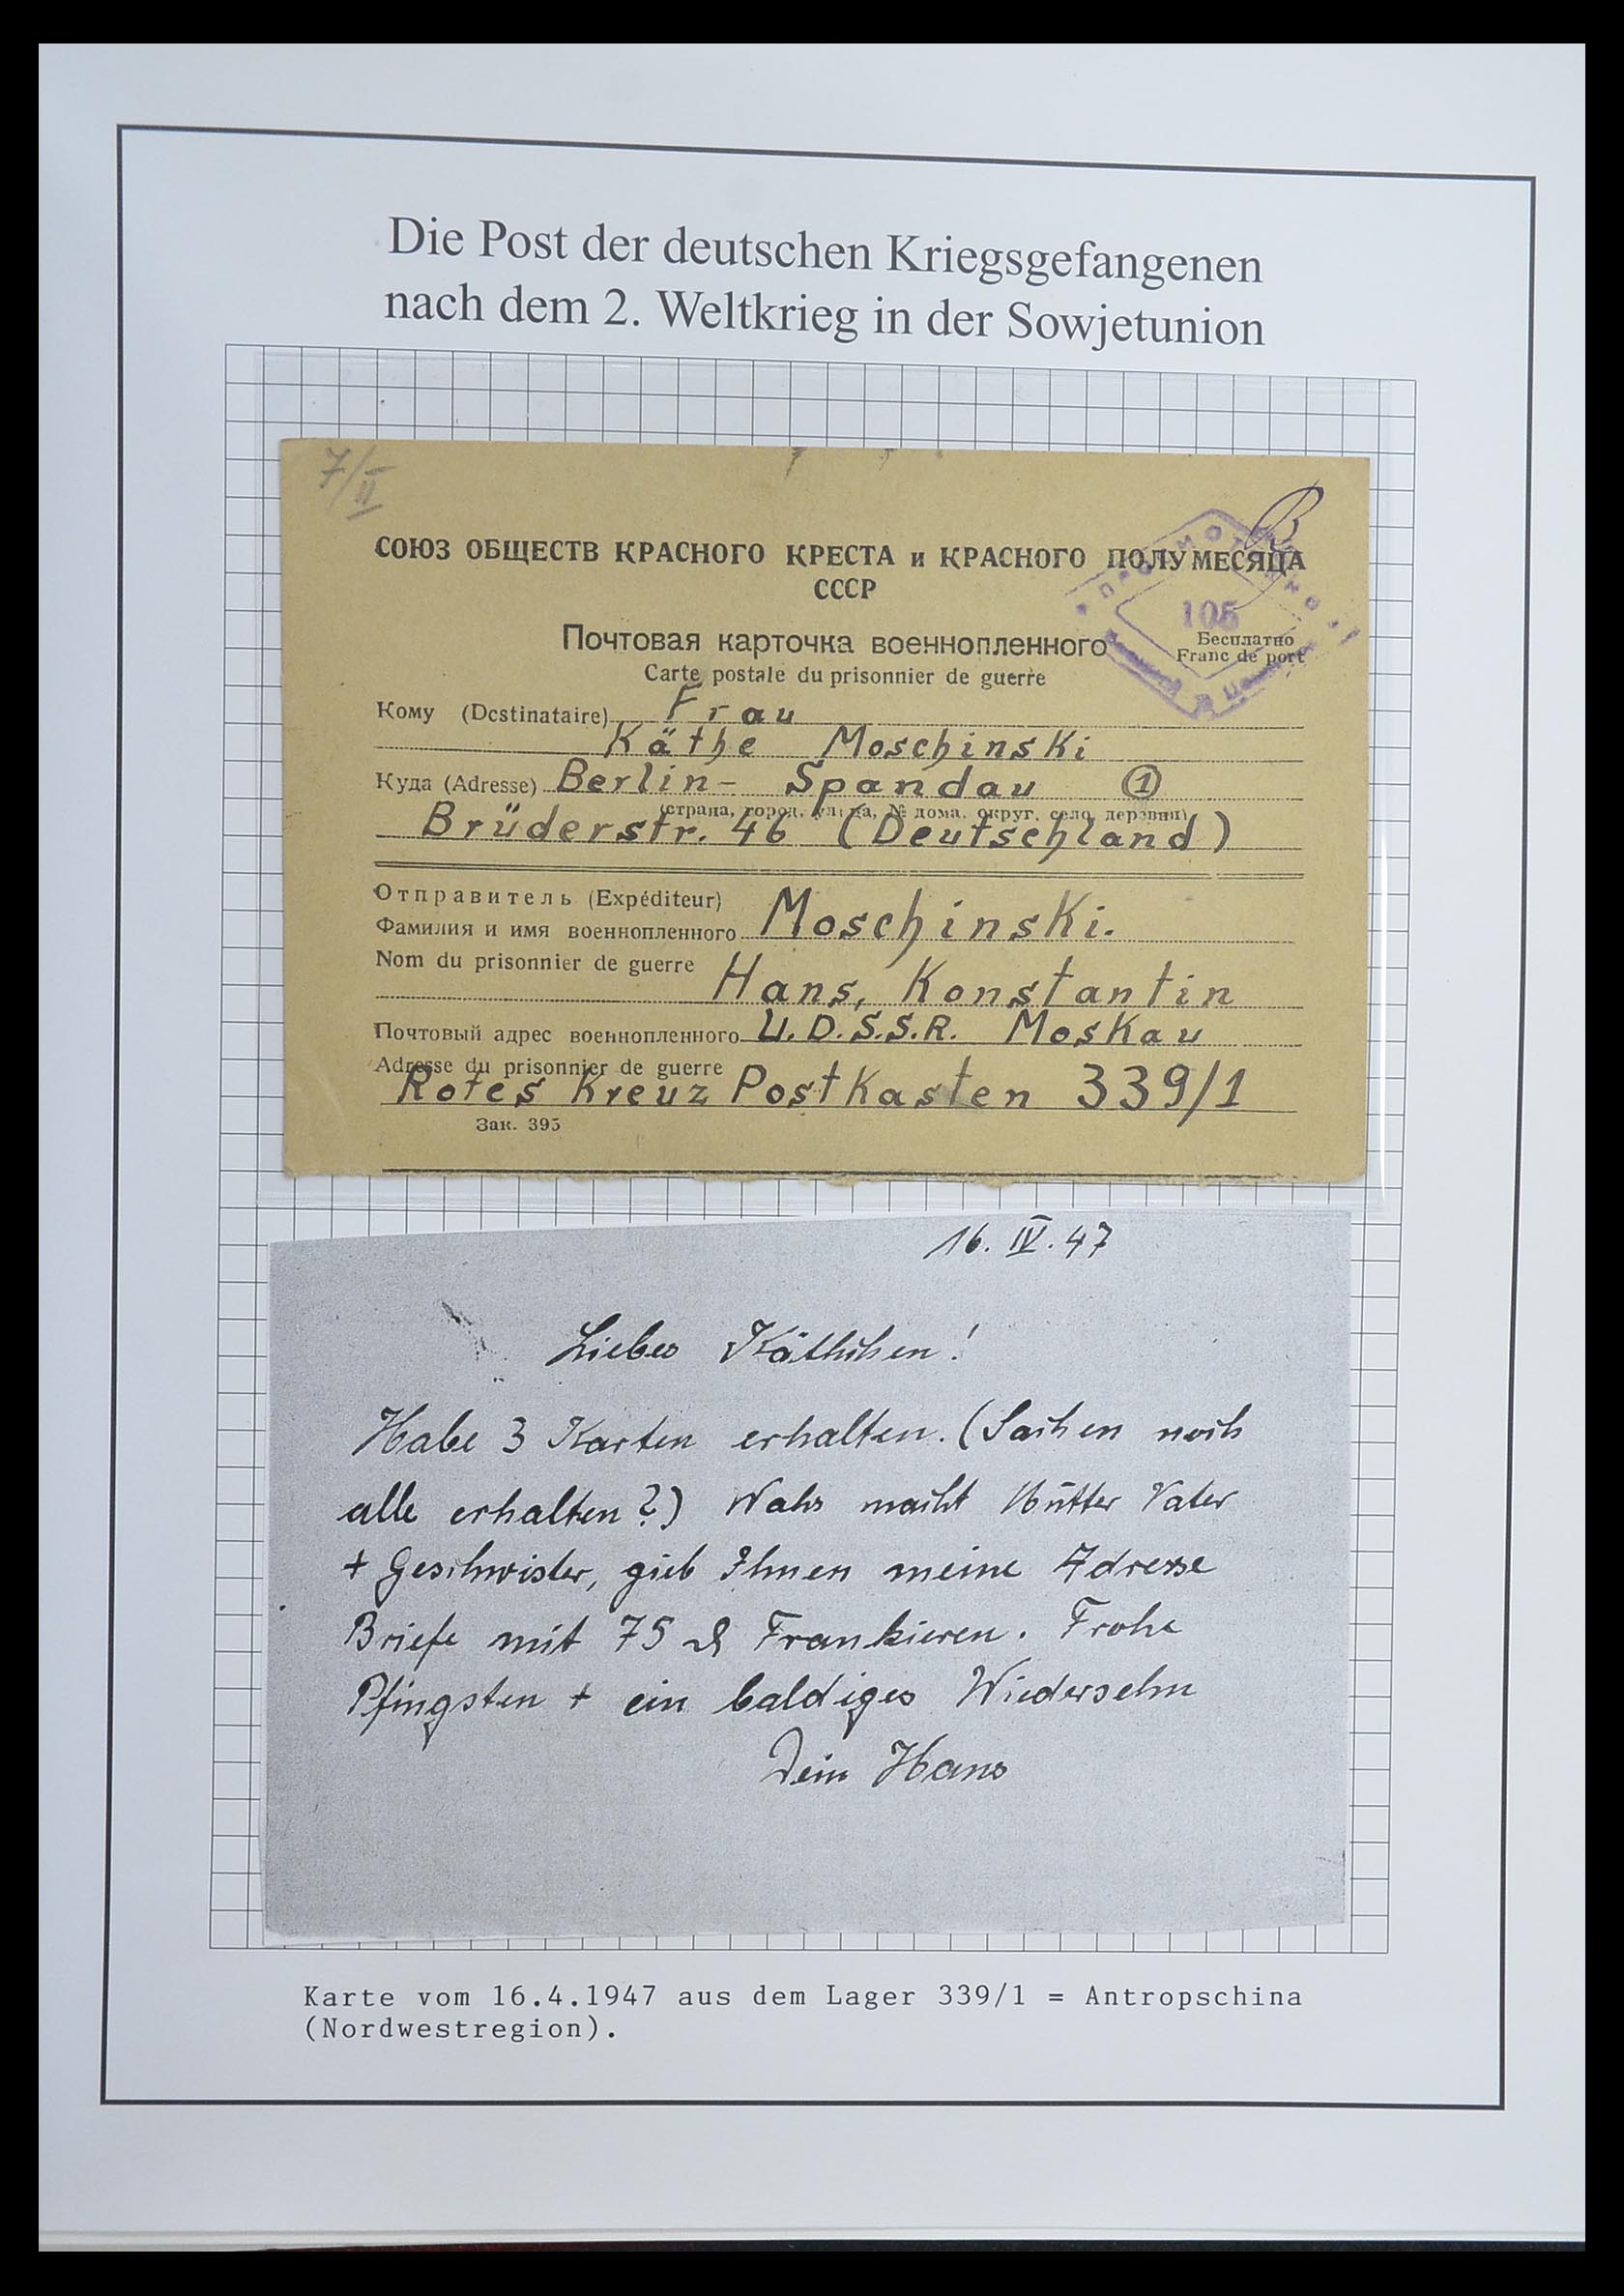 Die Post der deutschen Kriegsgefangenen
nach dem 2. Weltkrieg in der Sowjetunion
7/II
СОЮЗ ОБЩЕСТВ КРАСНОГО КРЕСТА и КРАСНОГО ПОЛУМЕСЯЦА
СССР
105
Почтовая карточка военнопленного
Бесплатно
Carte postale du prisonnier de guerre
Franc de port
Кому (Destinataire) Frau
Käthe Moschinski
Куда (Adresse) Berlin- Spandau ①
(страна, город, улица, № дома, округ, село, деревни)
Brüderstr. 46 (Deutschland)
Отправитель (Expéditeur)
Фамилия и имя военнопленного Moschinski.
Nom du prisonnier de guerre
Hans, Konstantin
Почтовый адрес военнопленного U.D.S.S.R. Moskau
Adresse du prisonnier de guerre
Rotes Kreuz Postkasten 339/1
Зак. 395
16. IV. 47
Liebes Käthchen!
Habe 3 Karten erhalten. (Sachen noch
alle erhalten?) Wahs macht Mutter Vater
+ Geschwister, gieb Ihnen meine Adresse
Briefe mit 75 ₰ Frankieren. Frohe
Pfingsten + ein baldiges Wiedersehn
Dein Hans
Karte vom 16.4.1947 aus dem Lager 339/1 = Antropschina
(Nordwestregion).